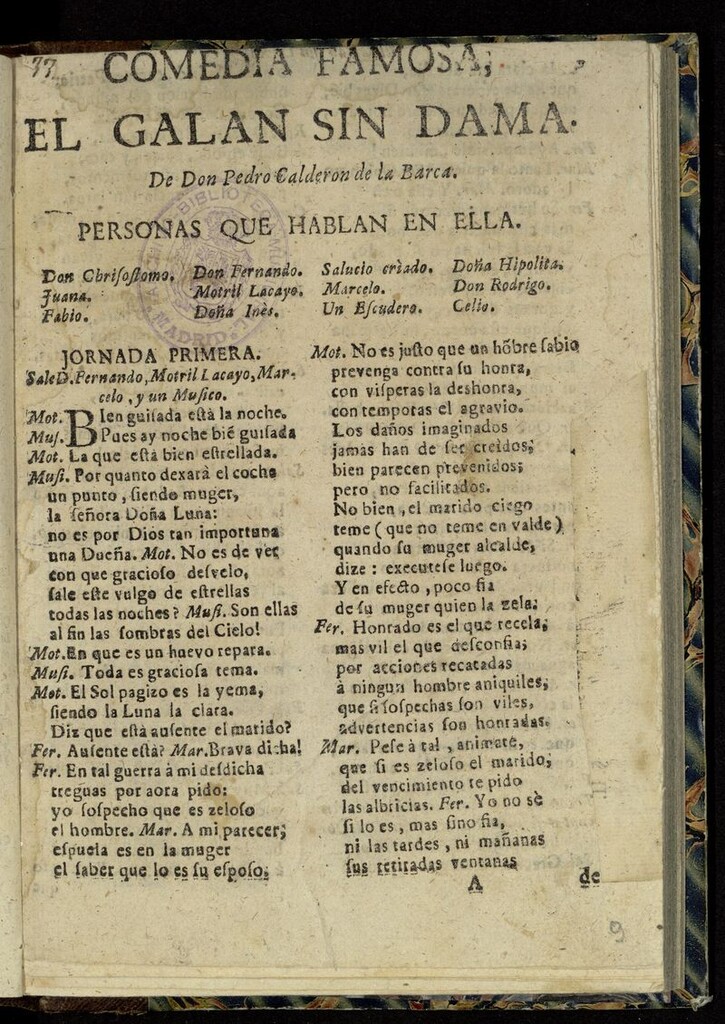 77
COMEDIA FAMOSA,
EL GALAN SIN DAMA.
De Don Pedro Calderon de la Barca.
PERSONAS QUE HABLAN EN ELLA.
Don Chriſoſtomo. Don Fernando. Salucio criado. Doña Hipolita.
Juana. Motril Lacayo. Marcelo. Don Rodrigo.
Fabio. Doña Inès. Un Eſcudero. Celio.
JORNADA PRIMERA.
Sale D. Fernando, Motril Lacayo, Mar-
celo, y un Muſico.
Mot. BIen guiſada eſtà la noche.
Muſ. Pues ay noche biē guiſada
Mot. La que eſtà bien eſtrellada.
Muſi. Por quanto dexarà el coche
un punto, ſiendo muger,
la ſeñora Doña Luna:
no es por Dios tan importuna
una Dueña. Mot. No es de vèr
con que gracioſo deſvelo,
ſale eſte vulgo de eſtrellas
todas las noches? Muſi. Son ellas
al fin las ſombras del Cielo!
Mot. En que es un huevo repara.
Muſi. Toda es gracioſa tema.
Mot. El Sol pagizo es la yema,
ſiendo la Luna la clara.
Diz que eſtà auſente el marido?
Fer. Auſente eſtà? Mar. Brava dicha!
Fer. En tal guerra à mi deſdicha
treguas por aora pido:
yo ſoſpecho que es zeloſo
el hombre. Mar. A mi parecer;
eſpuela es en la muger
el ſaber que lo es ſu eſpoſo.
Mot. No es juſto que un hōbre ſabio
prevenga contra ſu honra,
con viſperas la deshonra,
con temporas el agravio.
Los daños imaginados
jamàs han de ſer creidos;
bien parecen prevenidos;
pero no facilitados.
No bien, el marido ciego
teme (que no teme en valde)
quando ſu muger alcalde,
dize: executeſe luego.
Y en efecto, poco fia
de ſu muger quien la zela.
Fer. Honrado es el que recela,
mas vil el que deſconfia;
por acciones recatadas
à ningun hombre aniquiles,
que ſi ſoſpechas ſon viles,
advertencias ſon honradas.
Mar. Peſe à tal, animate,
que ſi es zeloſo el marido,
del vencimiento te pido
las albricias. Fer. Yo no sè
ſi lo es, mas ſino fia,
ni las tardes, ni mañanas
ſus retiradas ventanas
A de
9